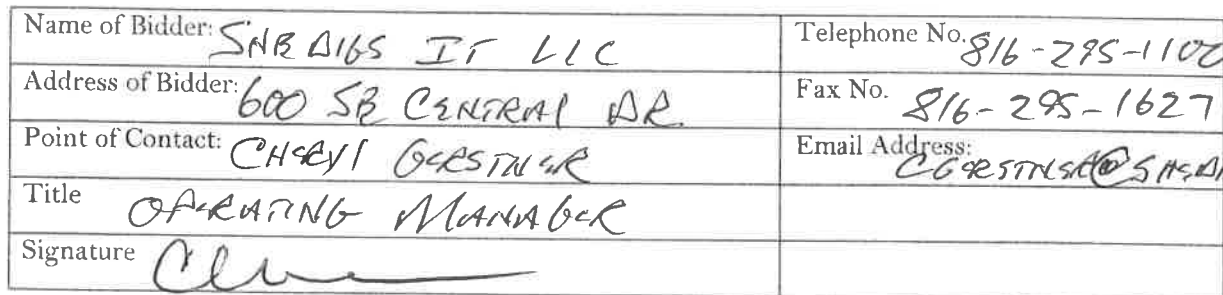 Name of Bidder: SHE DIGS IT LLC
Telephone No. 816-295-1100
Address of Bidder: 600 SE CENTRAL DR.
Fax No. 816-295-1627
Point of Contact: CHERYL GERSTNER
Email Address: CGERSTNER@SHEDI
Title OPERATING MANAGER
Signature